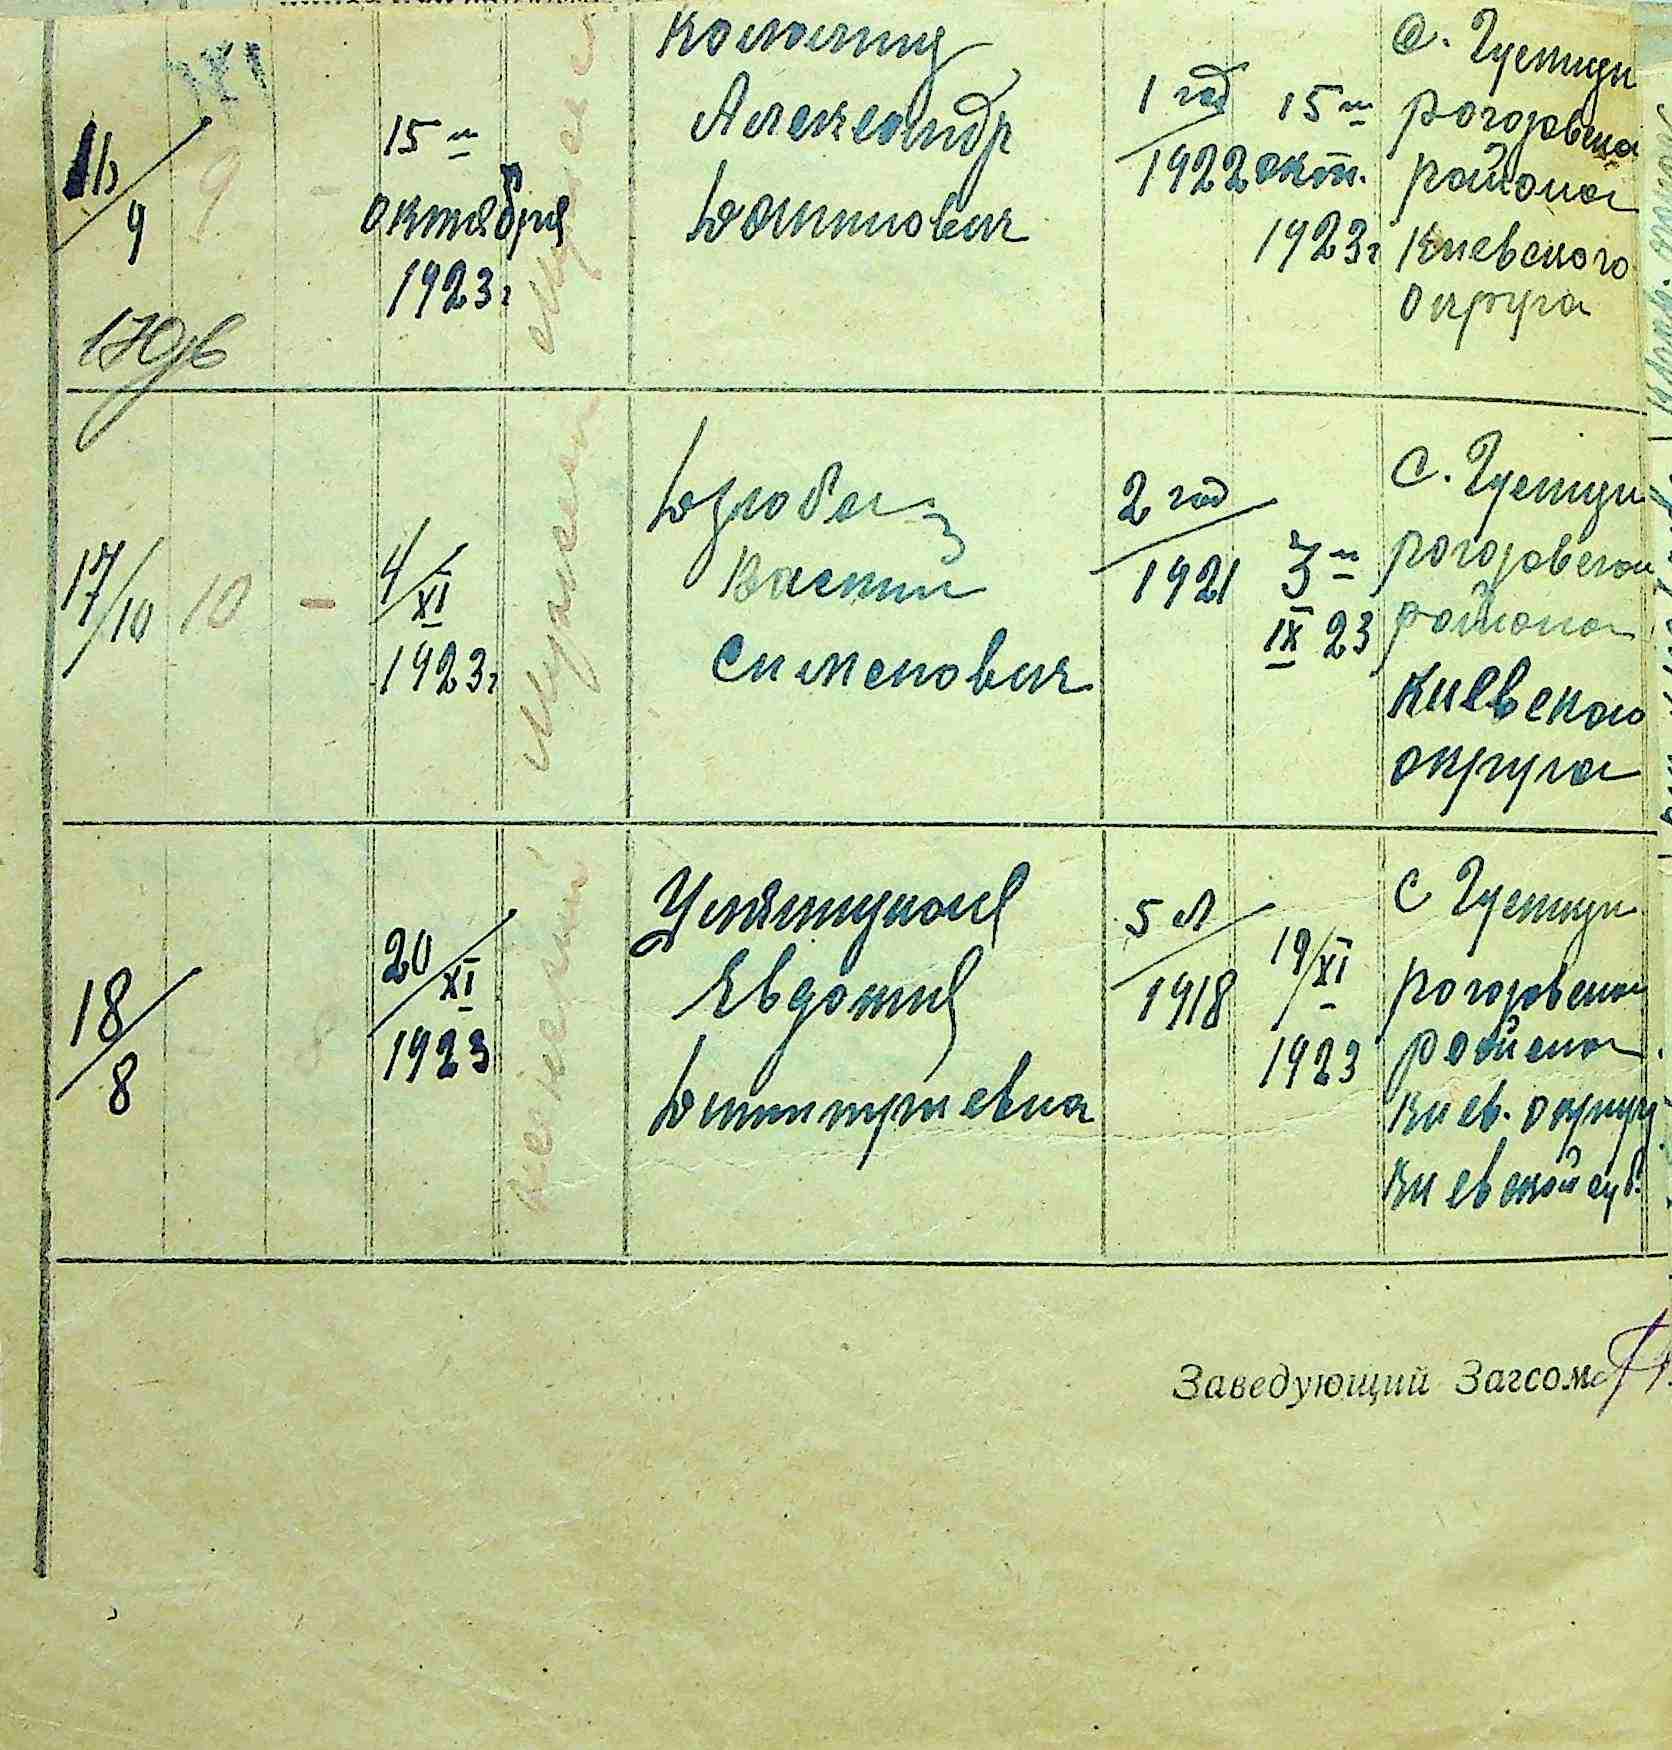 16/9
9
15го
октября
1923г
мужской
Коломиец
Александр
Данилович
1 год
1922
15го
окт.
1923г
с. Густици
Рогозовского
района
Киевского
округа
17/10
10
-
4/XI
1923г
мужской
Василий
Сименович
2 год
1921
3го
IX 23
с. Густици
Рогозовского
района
Киевского
округа
18/8
20/XI
1923
женский
Евдокия
Дмитриевна
5 л
1918
19/XI
1923
с Густици
Рогозовского
района
Киев. округу
Киевской губ.
Заведующий Загсом